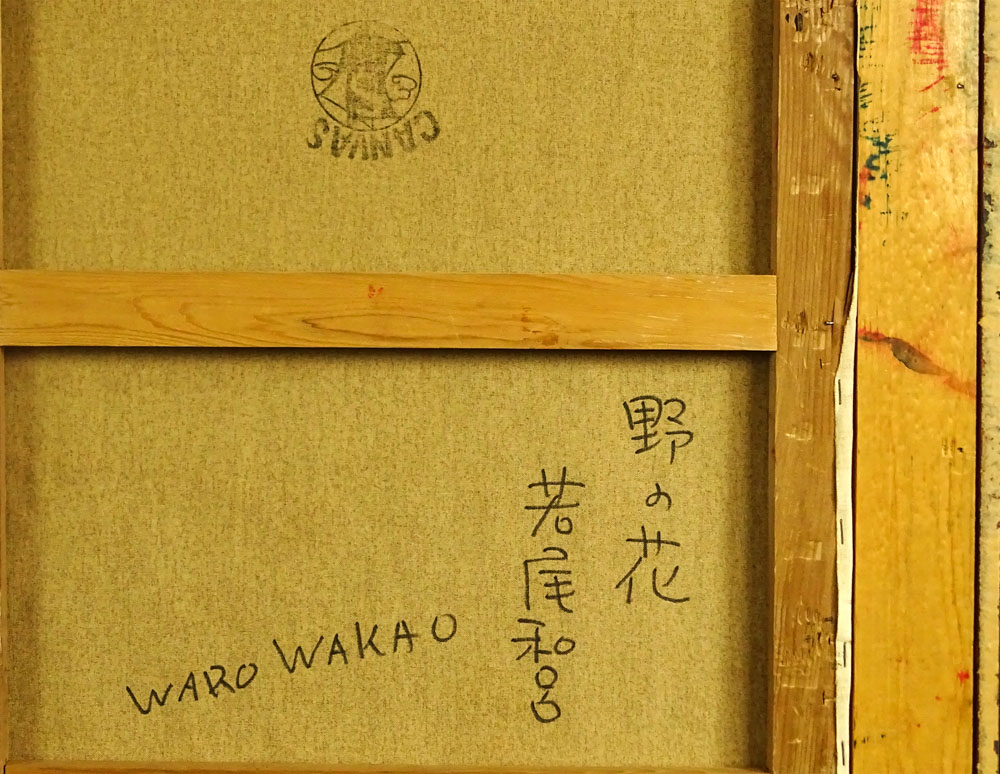 CANVAS
野の花
若尾和呂
WARO WAKAO